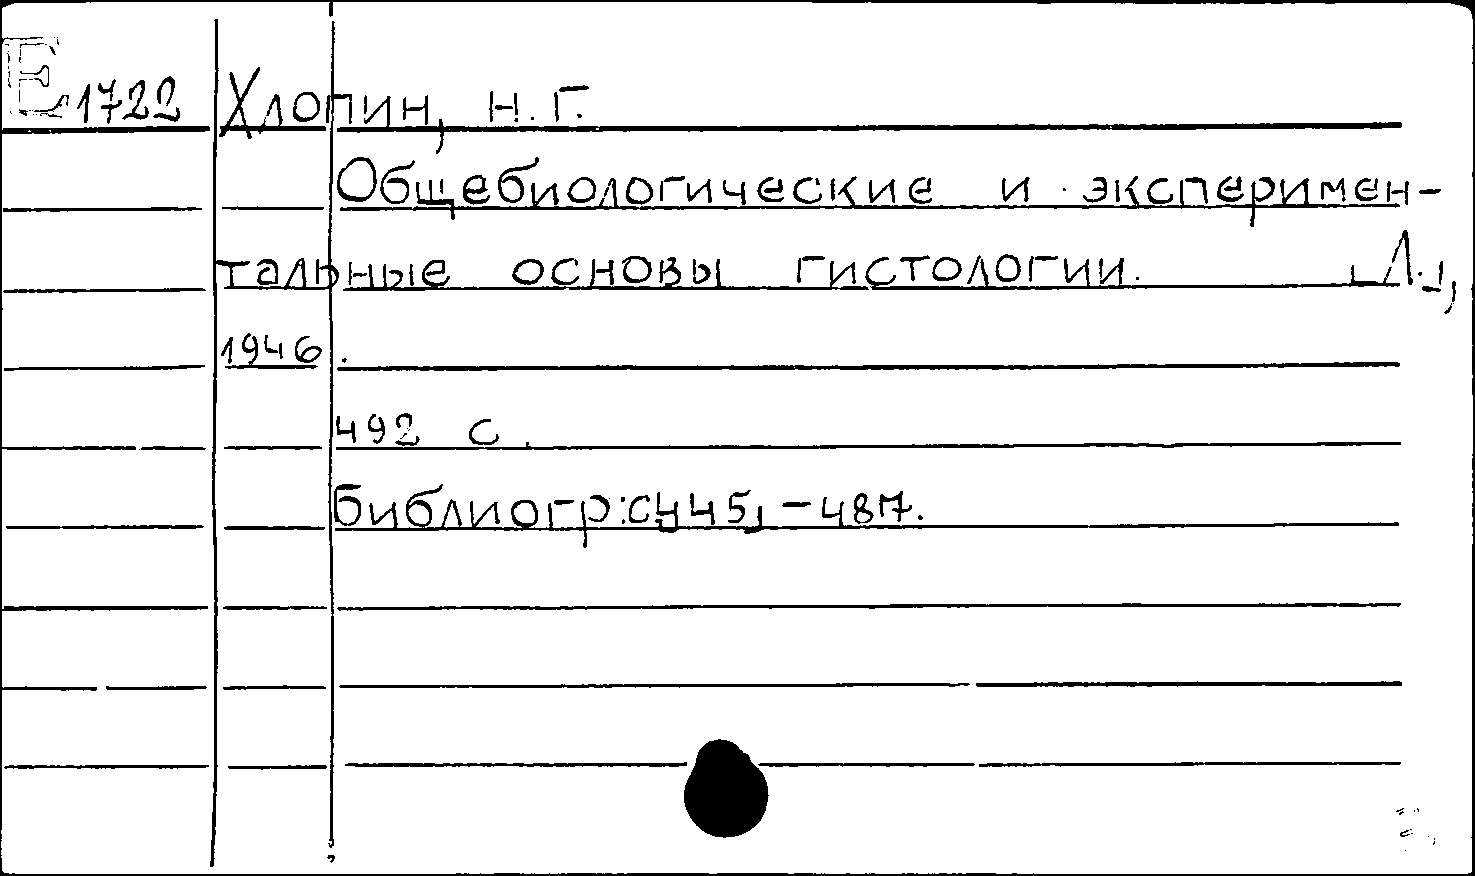 E1722 Хлопин, Н.Г.
Общебиологические и эксперимен-
тальные основы гистологии. [Л.],
1946.
492 с.
Библиогр: с. 445 -487.